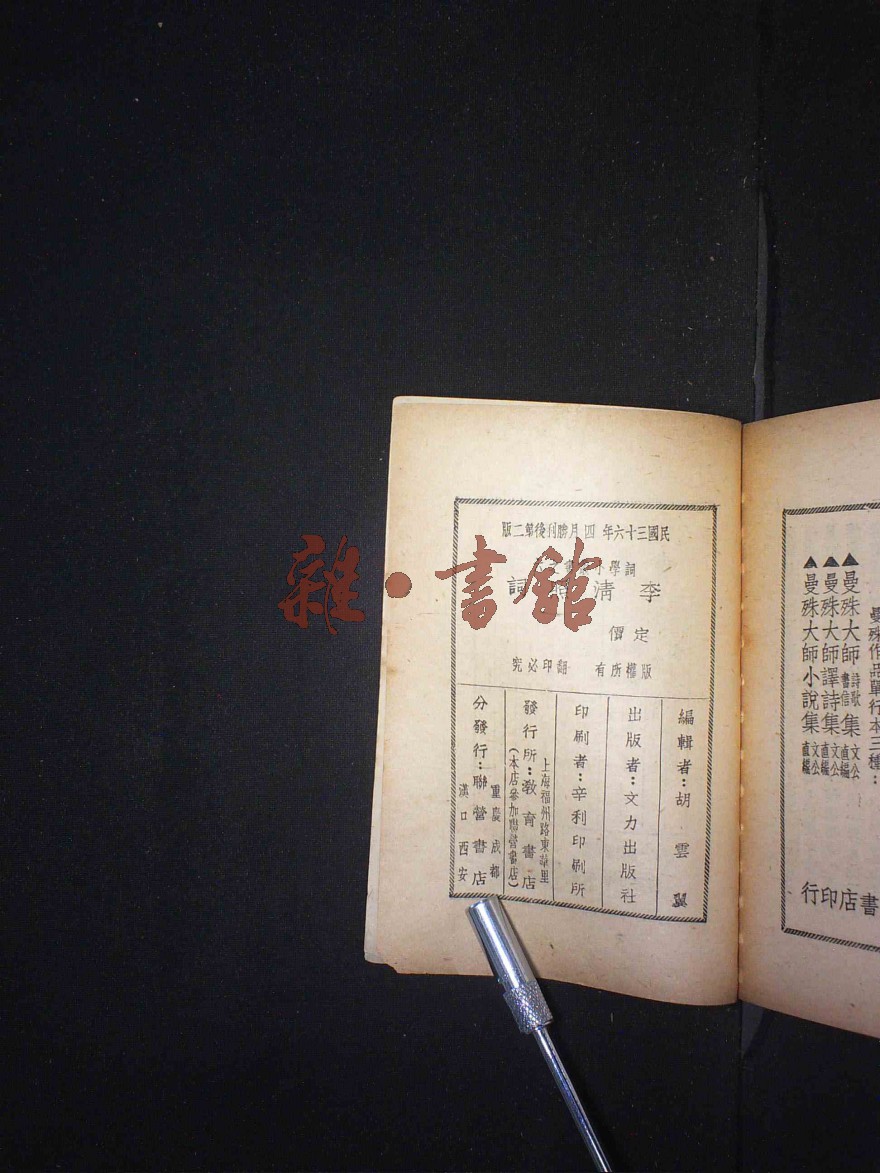 民國三十六年四月勝利後第二版
詞學小叢書之
李清照詞
定價
版權所有 翻印必究
編輯者：胡雲翼
出版者：文力出版社
印刷者：辛利印刷所
上海福州路東華里
發行所：教育書店
(本店參加聯營書店)
重慶 成都
分發行：聯營書店
漢口 西安
曼殊作品單行本三種：
▲曼殊大師詩歌書信集 文公直編
▲曼殊大師譯詩集 文公直編
▲曼殊大師小說集 文公直編
書店印行
雜·書館